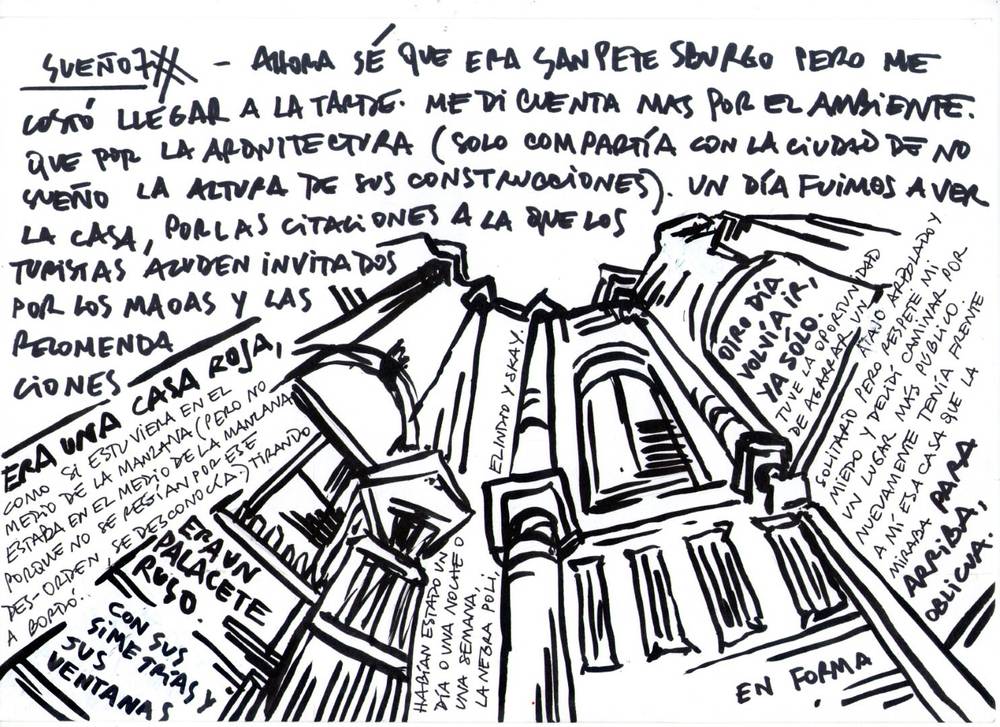 SUEÑO 7# - AHORA SÉ QUE ERA SAN PETESBURGO PERO ME
COSTÓ LLEGAR A LA TARDE. ME DI CUENTA MAS POR EL AMBIENTE.
QUE POR LA ARQUITECTURA (SOLO COMPARTÍA CON LA CIUDAD DE NO
SUEÑO LA ALTURA DE SUS CONSTRUCCIONES). UN DÍA FUIMOS A VER
LA CASA, POR LAS CITACIONES A LA QUE LOS
TURISTAS ACUDEN INVITADOS
POR LOS MAPAS Y LAS
RECOMENDA
CIONES
ERA UNA CASA ROJA,
COMO SI ESTUVIERA EN EL
MEDIO DE LA MANZANA (PERO NO
ESTABA EN EL MEDIO DE LA MANZANA
PORQUE NO SE REGÍAN POR ESE
DES-ORDEN, SE DESCONOCÍA) TIRANDO
A BORDÓ.
ERA UN
PALACETE
RUSO.
CON SUS
SIMETRÍAS Y
SUS
VENTANAS
HABÍAN ESTADO UN
DÍA O UNA NOCHE O
UNA SEMANA,
LA NEGRA POLI,
EL INDIO Y SKAY.
OTRO DÍA
VOLVÍA IR,
YA SÓLO.
TUVE LA OPORTUNIDAD
DE AGARRAR UN
ATAJO ARBOLADO Y
SOLITARIO PERO RESPETÉ MI
MIEDO Y DECIDÍ CAMINAR POR
UN LUGAR MAS PUBLICO.
NUEVAMENTE TENÍA FRENTE
A MÍ ESA CASA QUE LA
MIRABA PARA
ARRIBA,
OBLICUA.
EN FORMA